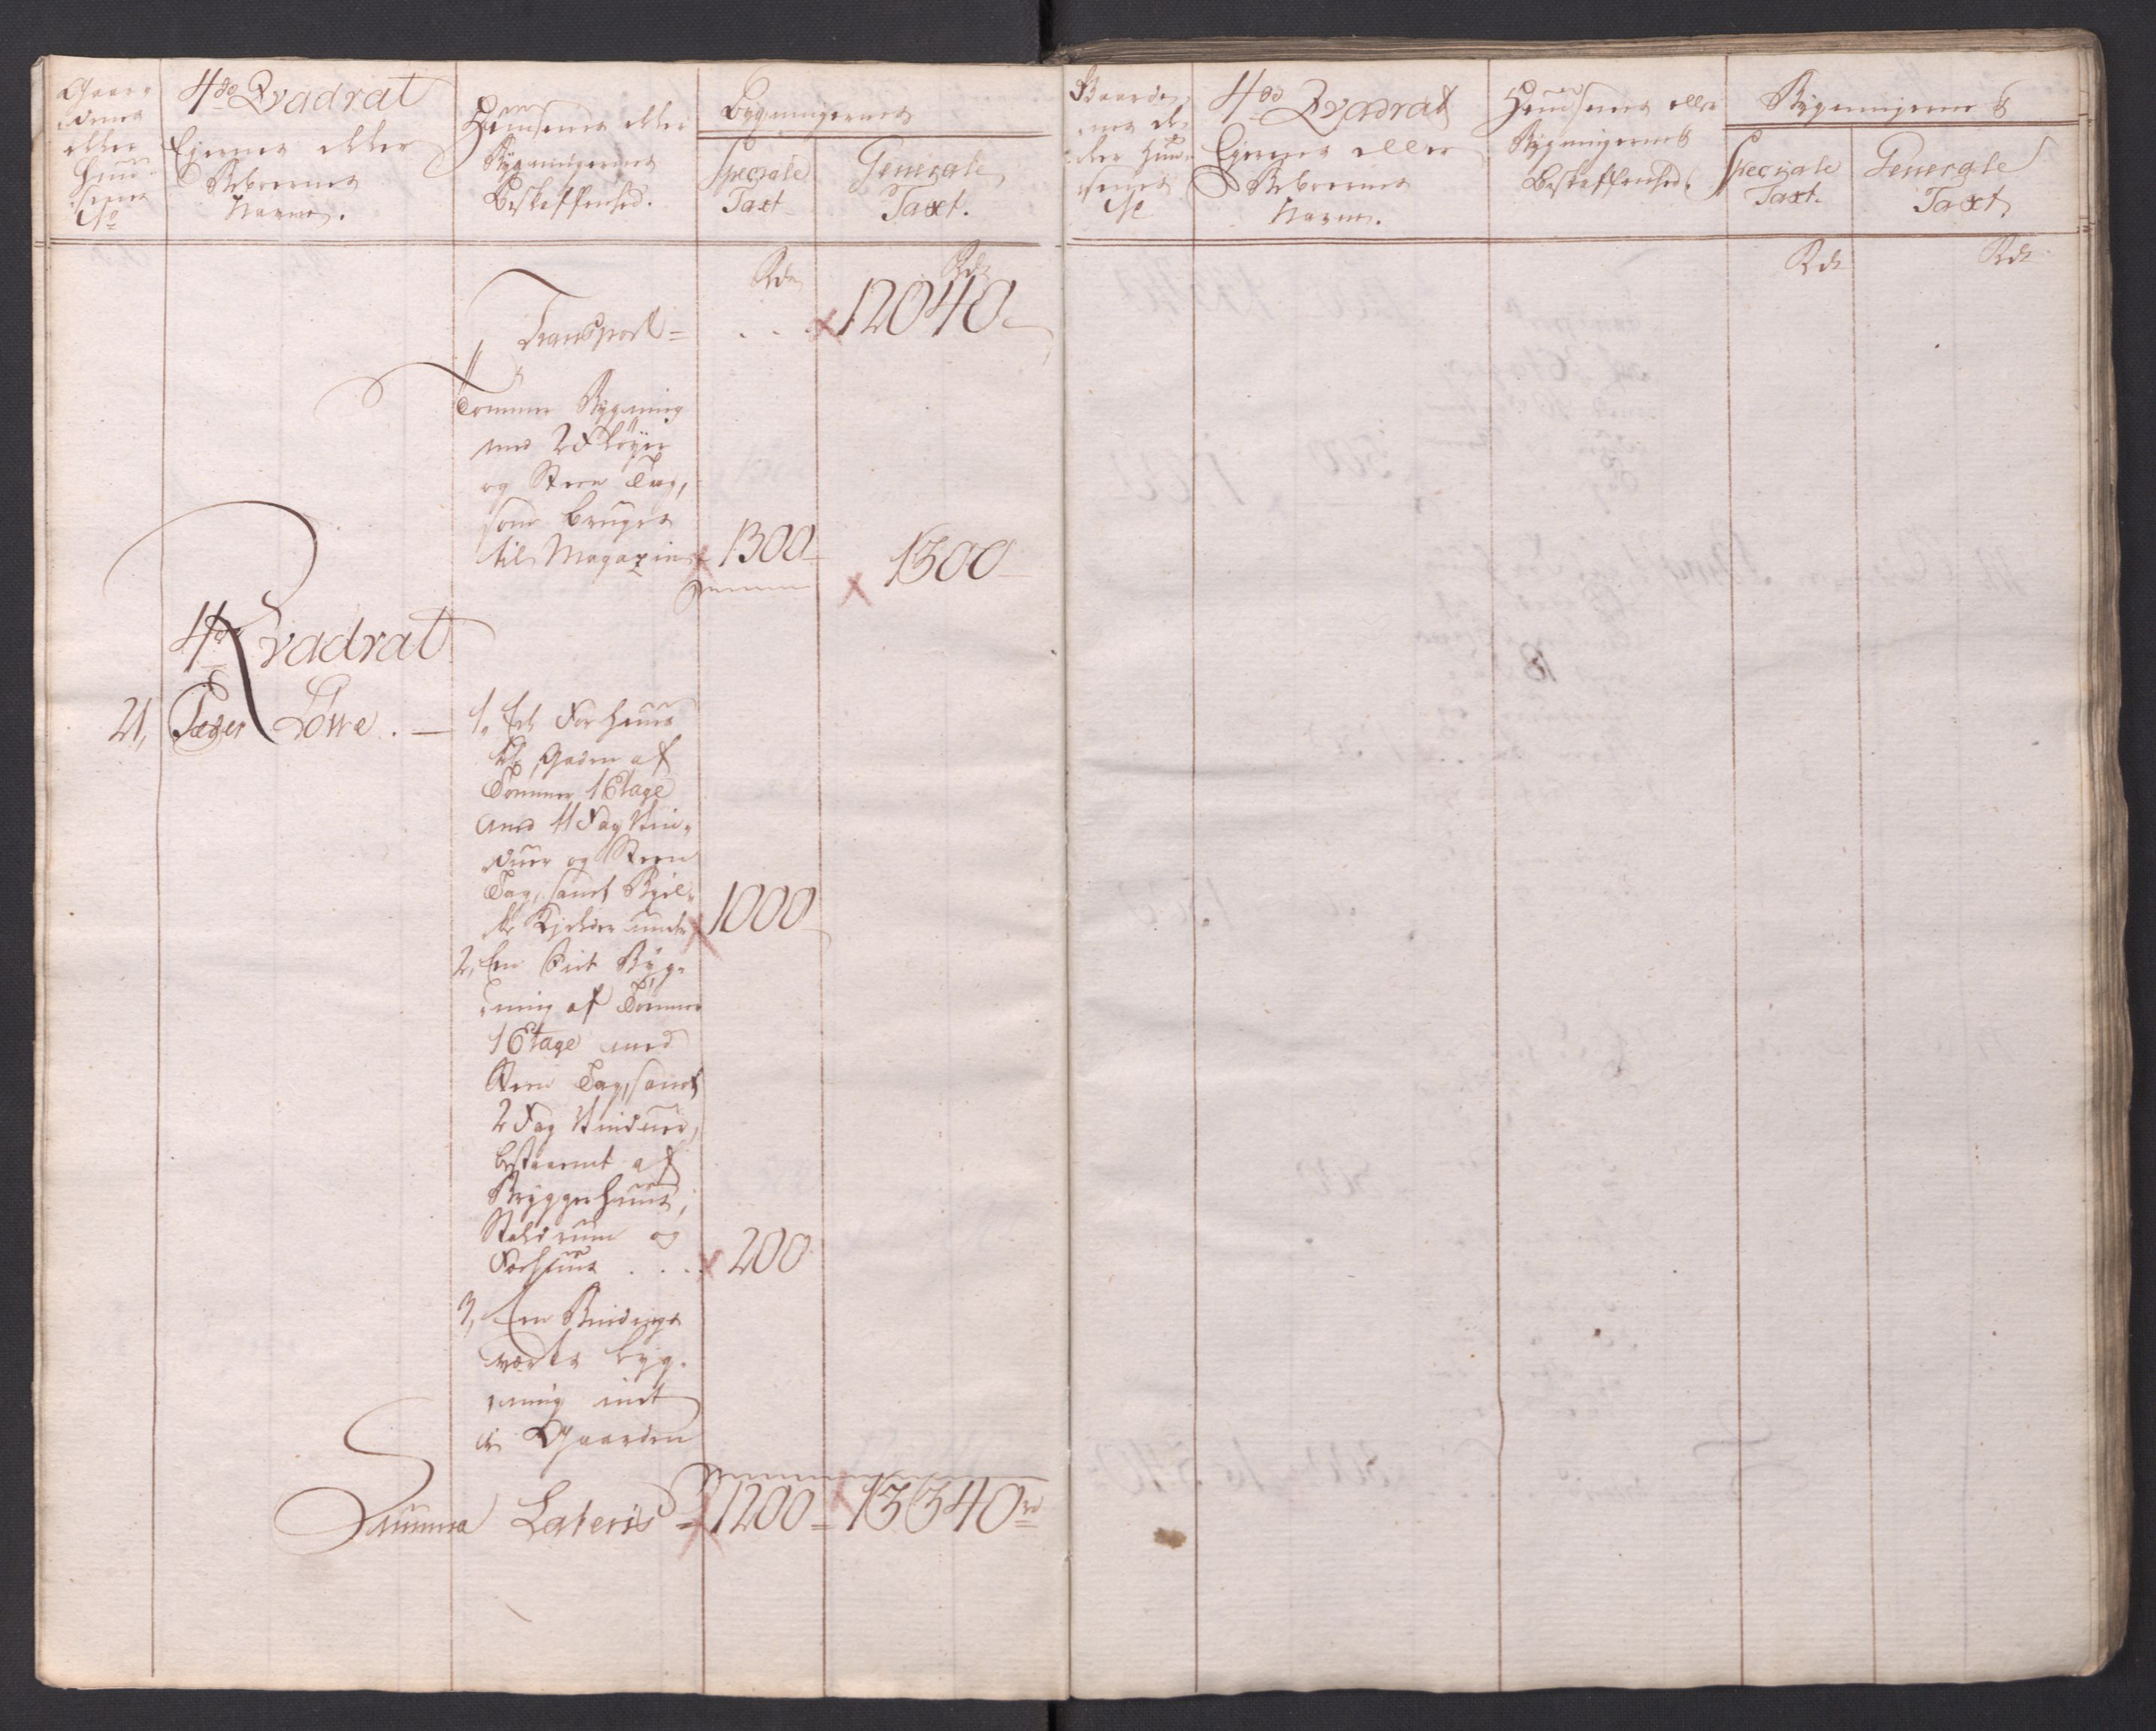 Gaar-
denes
eller
Huu-
senes
No
4de Qvadrat
Ejernes eller
Beboernes
Navne.
Huusenes eller
Bygningernes
Beskaffenhed.
Bygningernes
Speciale
Taxt
Generale
Taxt.
Rdr
Rdr
Transport =
. . . 12040
Tømmer Bygning
med 2 Fløye
og Steen Tag,
som bruges
til Magazin
1300
1300
4de Qvadrat
21, Peder Löwe. —
1, Et Forhuus
til Gaden af
Tømmer 1 Etage
med 11 Fag Vin-
duer og Steen
Tag, samt Bjel-
ke Kjelder under
1000
2, En Liit Byg-
ning af Tømmer
1 Etage med
Steen Tag, samt
2 Fag Vinduer,
bestaaende af
Bryggerhuus,
Staldrum og
. . . 200
3, En Bindings
værks byg-
ning inde
i Gaarden
Summa Lateris = 1200 = 13340 rd
Gaarde-
nes el-
ler Huu-
senes
No
4de Qvadrat
Ejernes eller
Beboernes
Navne.
Huusenes eller
Bygningernes
Beskaffenhed.
Bygningernes
Speciale
Taxt.
Generale
Taxt
Rdr
Rdr